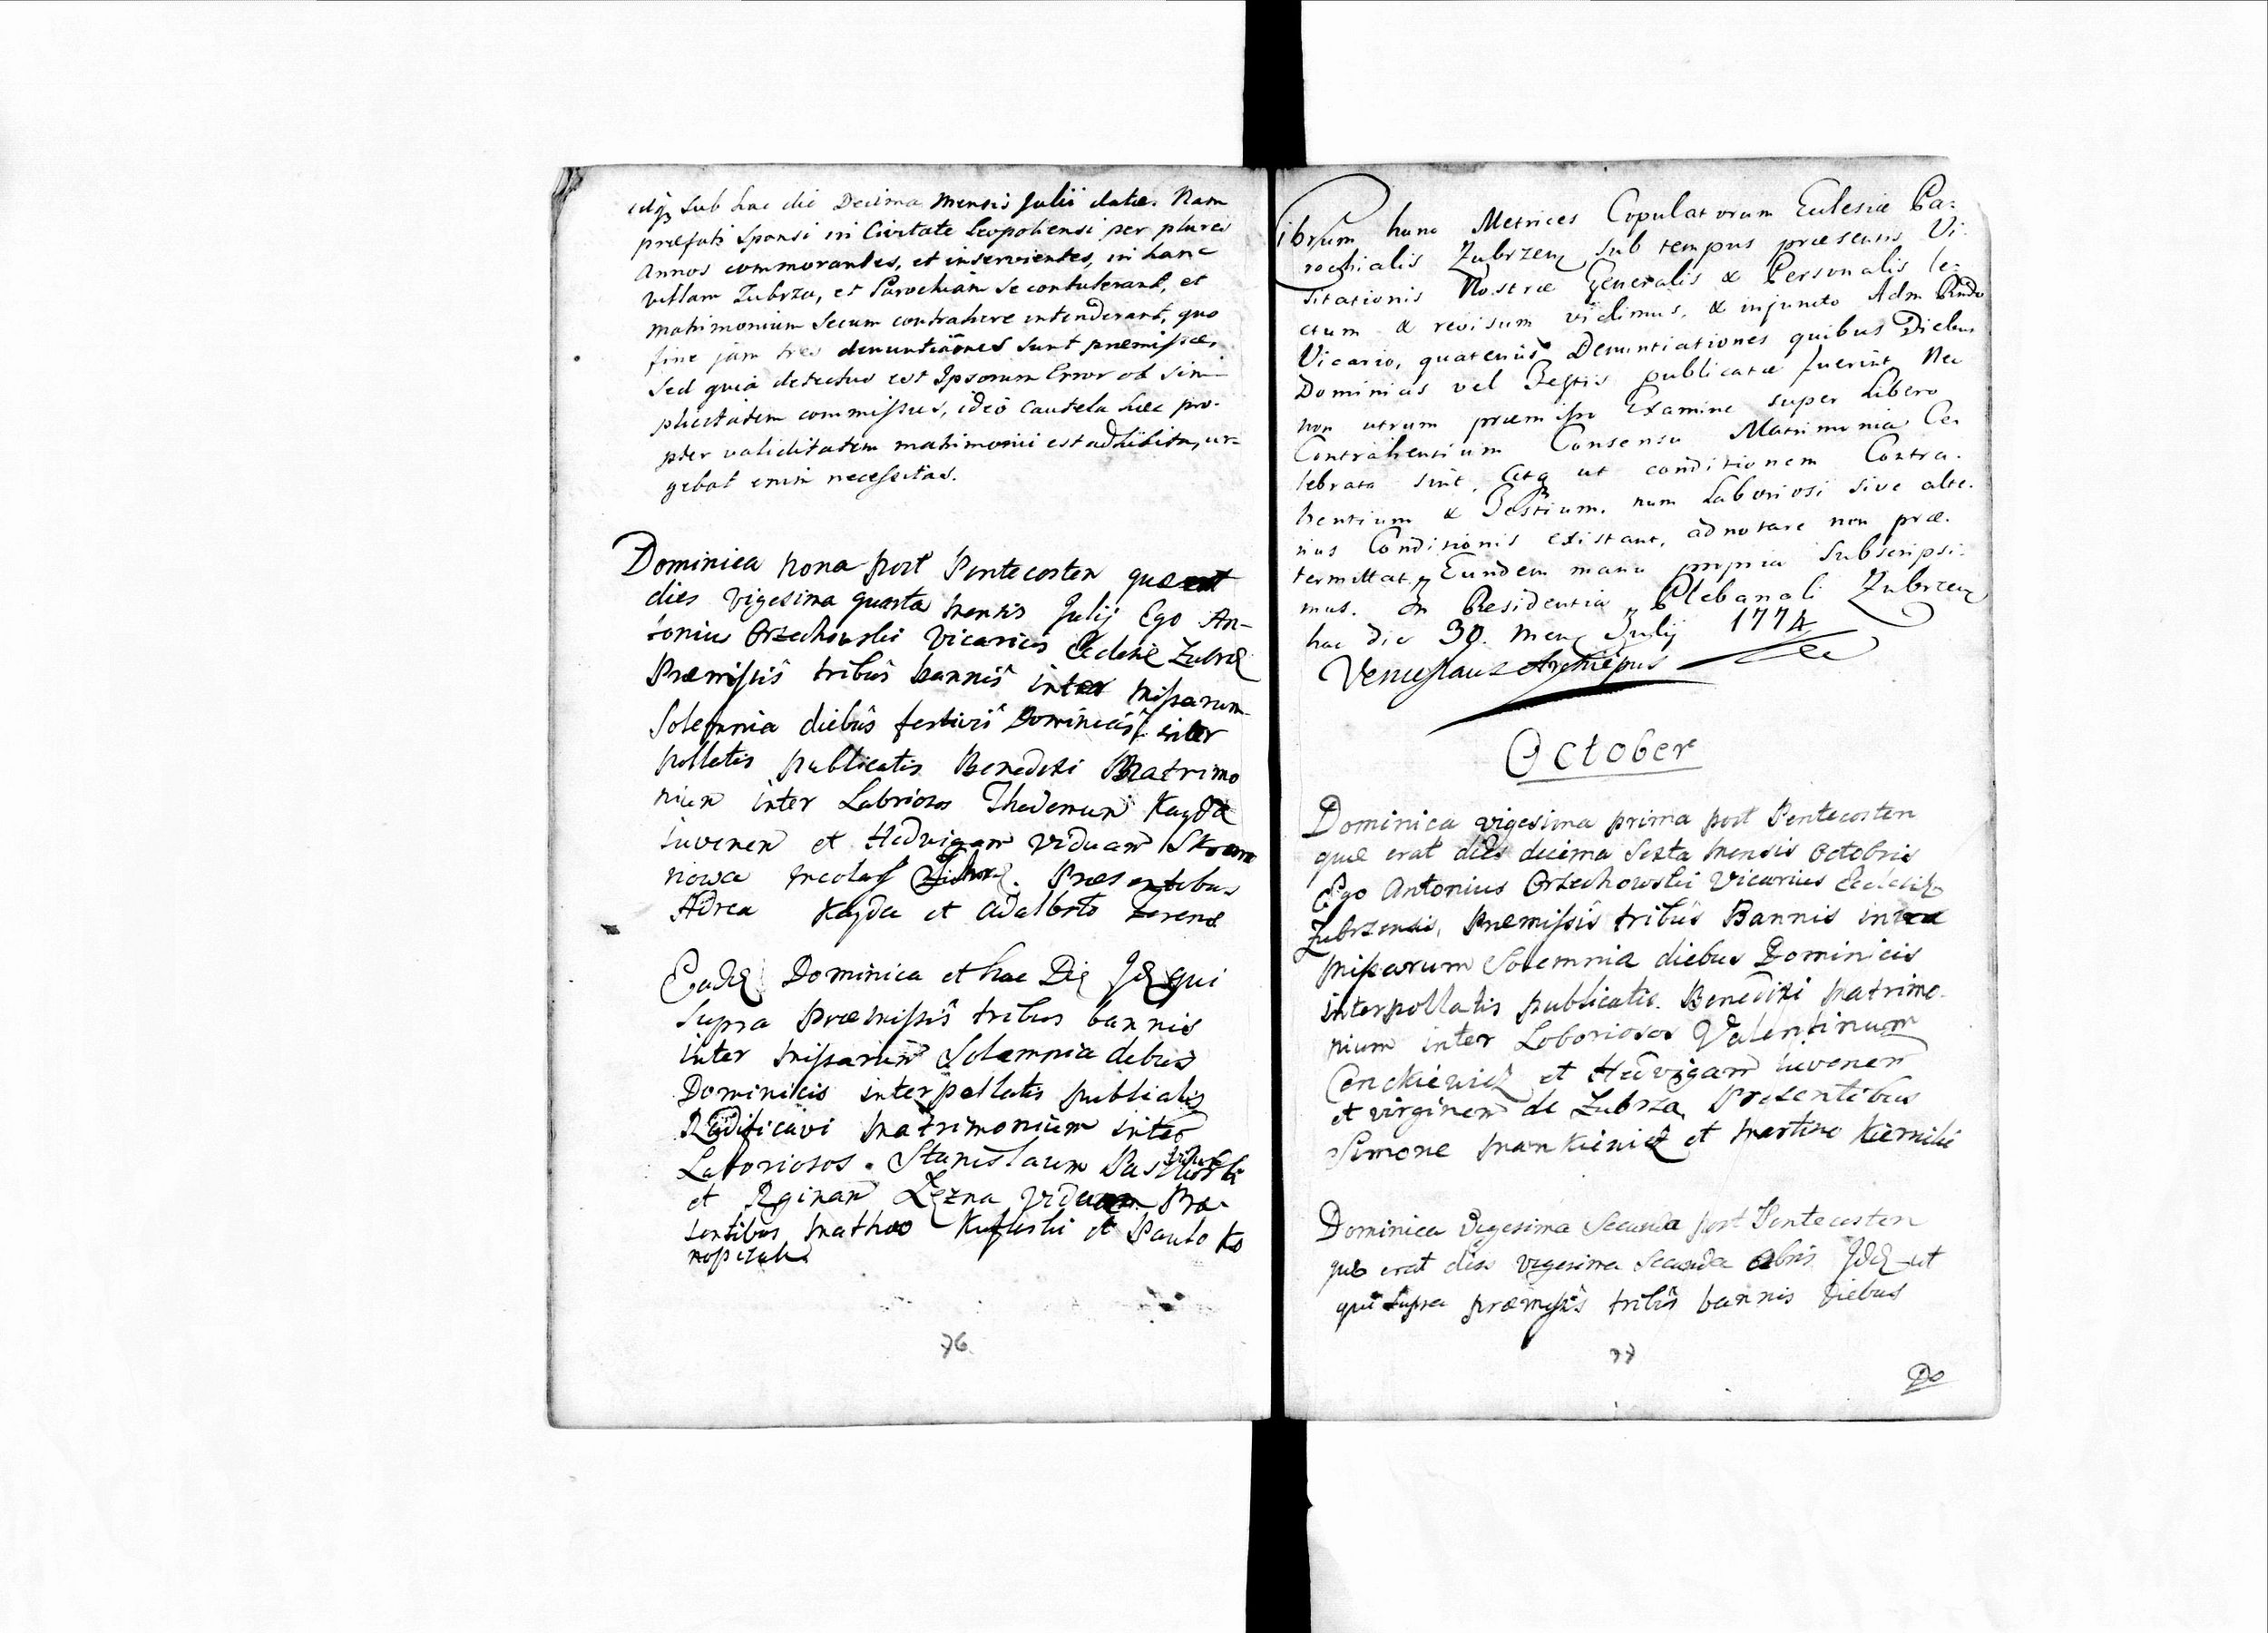 idq3 sub hac die Decima Mensis Julii datæ. Nam
præfati Sponsi in Civitate Leopoliensi per plures
annos commorantes, et inservientes, in hanc
villam Zubrza, et Parochiam se contulerant, et
matrimonium secum contrahere intenderant, quo
fine jam tres denuntiãones sunt præmissæ,
Sed quia detectus est Ipsorum Error ob sim-
plicitatem commissus, ideo Cautela hæc pro-
pter validitatem matrimonii est adhibita, ur-
gebat enim necessitas.
Dominica nona post Pentecosten quæ est
dies vigesima quarta mensis Julij Ego An-
tonius Orzechowski Vicarius Ecclesiæ
Præmissis tribus bannis inter missarum
Solemnia diebus festivis Dominicis inter
pollatis publicatis Benedixi Matrimo
nium inter Labriosos Thadeum Kayda
iuvenem et Hedvigam viduam
Præsentibus
Adrea Kayda et Adalberto
Dominica et hac Die qui
supra Præmissis tribus bannis
inter missarum Solemnia debus
Dominicis interpellatis publicatis
Radificavi matrimonium inter
Laboriosos Stanislaum
et Reginam viduam Præ
sentibus Matheo et Paulo Ko
76
Librum hunc Metrices Copulatorum Eclesiæ Pa-
rochialis Zubrzen sub tempus præsentis Vi-
sitationis Nostræ Generalis & Personalis le-
ctum & revisum vidimus, & injuncto Adm Rndo
Vicario, quatenus Denuntiationes quibus Diebus
Dominicis vel Festis publicatæ fuerint Nec
non utrum præmisso Examine super Libero
Contrahentium Consensu Matrimonia Ce-
lebrata sint, atq ut conditionem Contra-
hentium & Testium, num Laboriosi sive alte-
rius Conditionis existant, adnotare non præ-
termittat, Eundem manu propria Subscripsi-
mus. In Residentia Plebanali Zubrzen
hac die 30. Mens Julij 1774
Venceslaus Archiepus
October
Dominica vigesima prima post Pentecosten
quæ erat dies decima Sexta mensis Octobris
Ego Antonius Orzechowski Vicarius Ecclesiæ
Zubrzensis, Præmissis tribus Bannis intra
missarum Solemnia diebus Dominicis
interpollatis publicatis Benedixi matrimo-
nium inter Loboriosos Valentinum
et Hedvigam iuvenem
et virginem de Zubrza Presentibus
Simone et Martino
Dominica Vigesima Secunda post Pentecosten
quæ erat dies vigesima Secunda ut
qui Supra præmissis tribus bannis diebus
77
Do